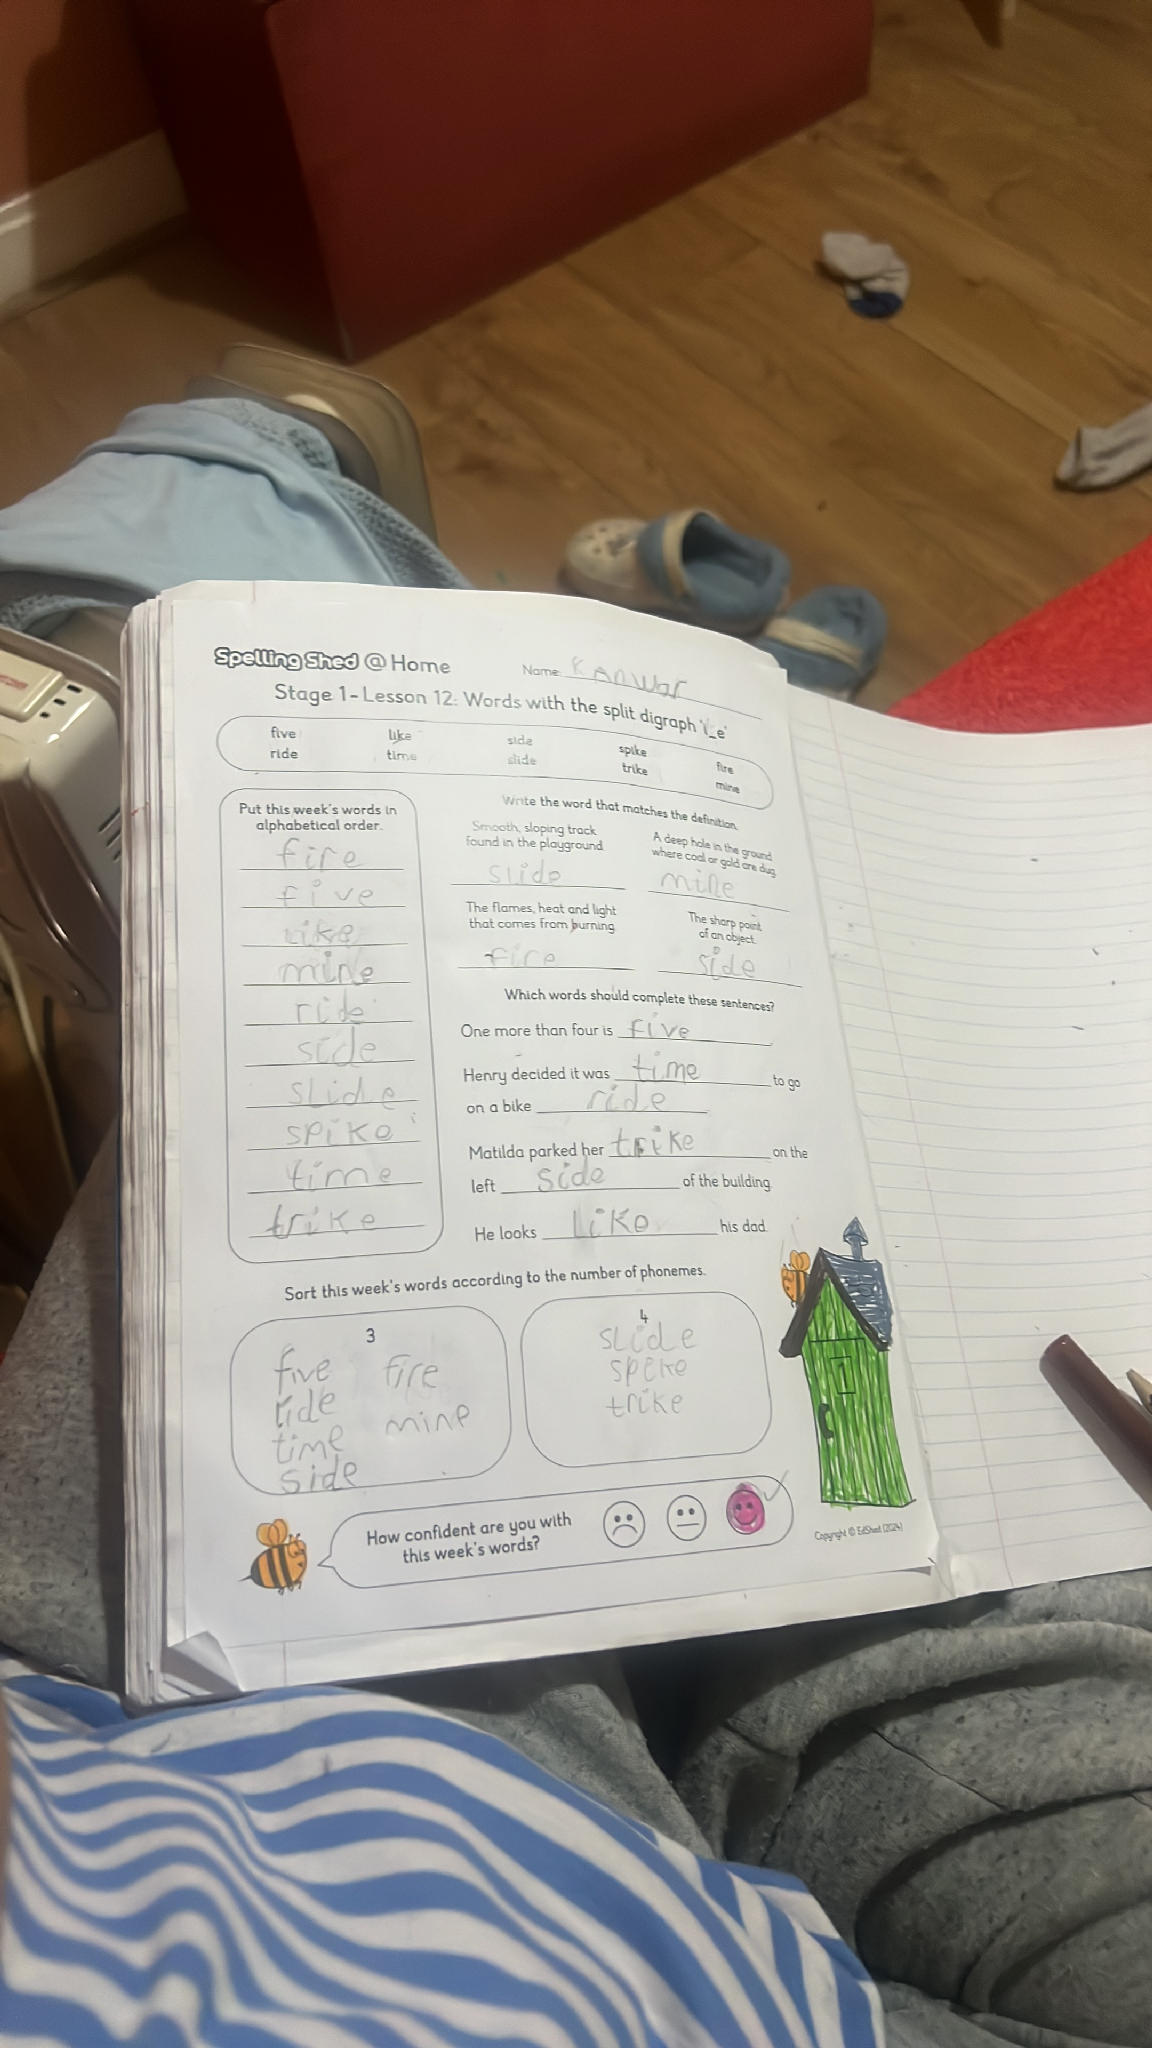 Spelling Shed @ Home
Name: Kanwar
Stage 1 - Lesson 12: Words with the split digraph 'i_e'
five like side spike fire
ride time slide trike mine
Put this week's words in
alphabetical order.
fire
five
like
mine
ride
side
slide
spike
time
trike
Write the word that matches the definition.
Smooth, sloping track
found in the playground
slide
A deep hole in the ground
where coal or gold are dug.
mine
The flames, heat and light
that comes from burning.
fire
The sharp point
of an object.
side
Which words should complete these sentences?
One more than four is five
Henry decided it was time to go
on a bike ride
Matilda parked her trike on the
left side of the building.
He looks like his dad.
Sort this week's words according to the number of phonemes.
3
five fire
ride mine
time
side
4
slide
spike
trike
1
How confident are you with
this week's words?
Copyright © EdShed (2024)